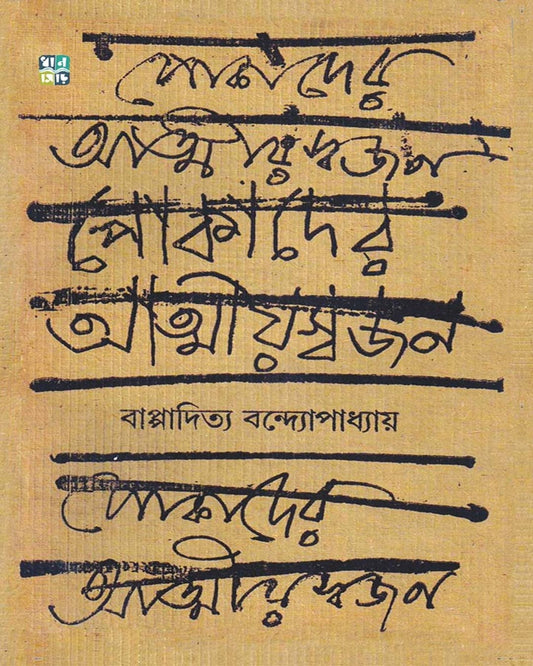 ধান
সিঁড়ি
পোকাদের
আত্মীয়স্বজন
পোকাদের
আত্মীয়স্বজন
বাপ্পাদিত্য বন্দ্যোপাধ্যায়
পোকাদের
আত্মীয়স্বজন